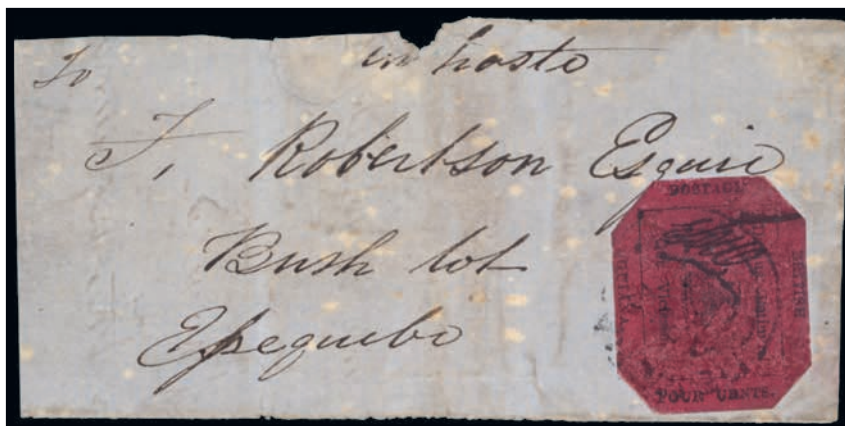 To
in haste
J, Robertson Esquir
Bush lot
Essequibo
POSTAGE
BRITISH
FOUR CENTS.